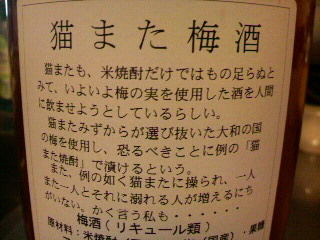 猫また梅酒
猫またも、米焼酎だけではもの足らぬと
みて、いよいよ梅の実を使用した酒を人間
に飲ませようとしているらしい。
猫またみずからが選び抜いた大和の国
の梅を使用し、恐るべきことに例の「猫
また焼酎」で漬けるという。
また、例の如く猫またに操られ、一人
また一人とそれに溺れる人が増えるにち
がいない。かく言う私も・・・・・・・
梅酒(リキュール類)
原材料:米焼酎 (国産)・果糖